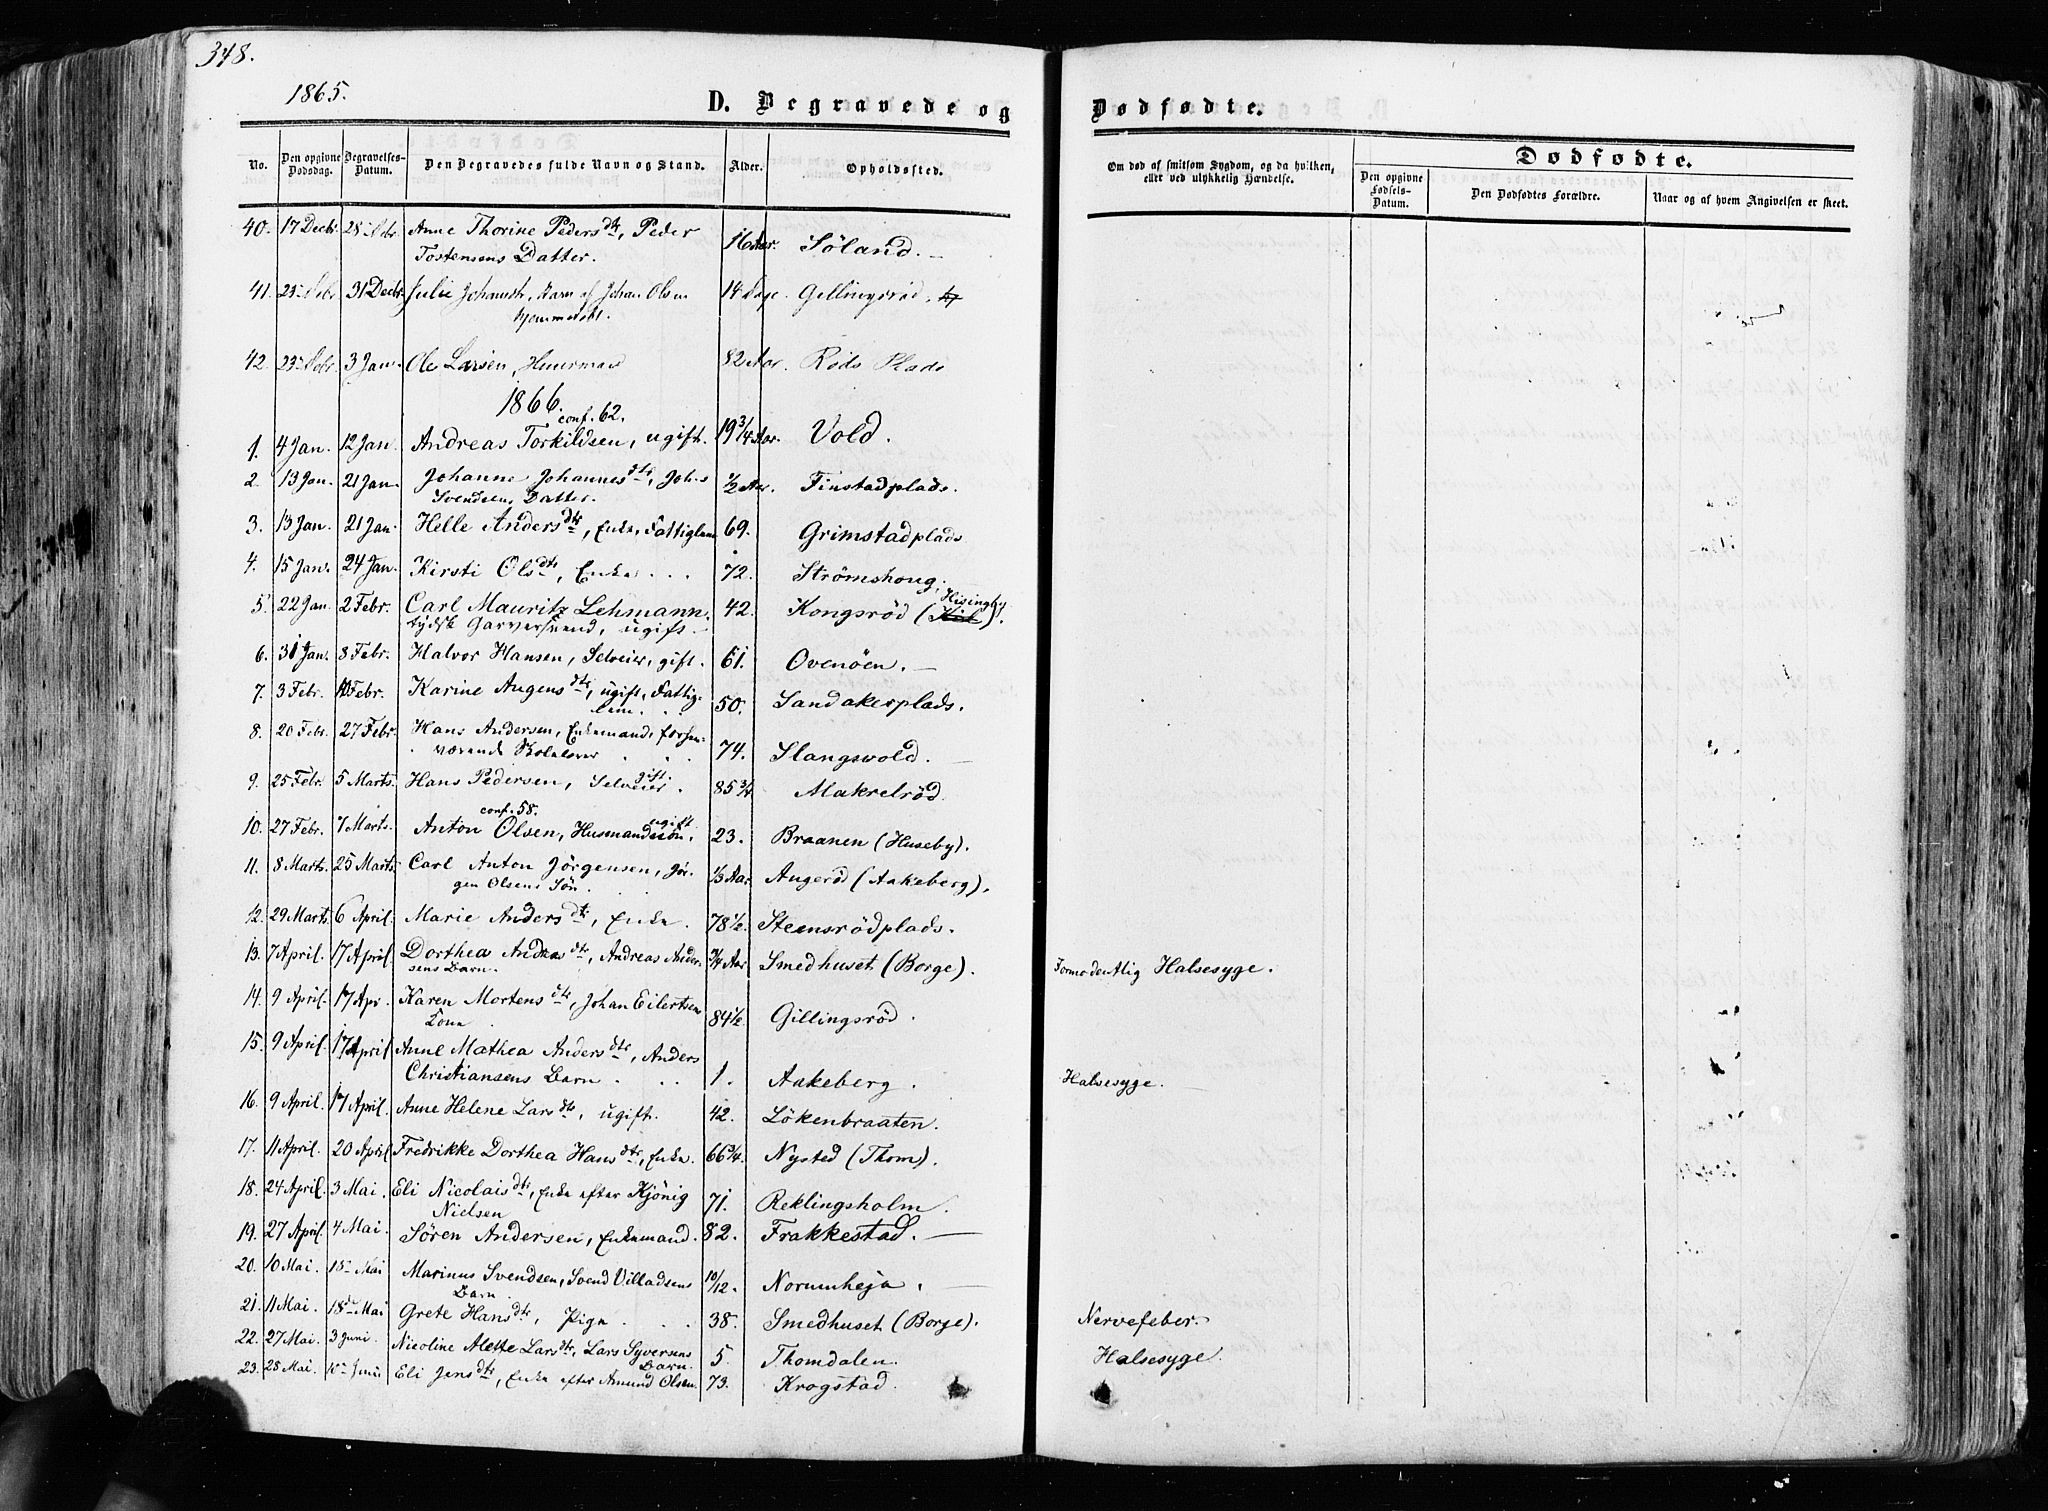 348.
1865.
D. Begravede og Dødfødte.
No. Den opgivne Dødsdag. Begravelses-Datum. Den Begravedes fulde Navn og Stand. Alder. Opholdssted. Om død af smitsom Sygdom, og da hvilken, eller ved ulykkelig Hændelse. Dødfødte. Den opgivne Fødsels-Datum. Den Dødfødtes Forældre. Naar og af hvem Angivelsen er skeet.
40. 17 Decbr. 28 Anne Thorine Pedersdtr, Peder 16 Aar. Söland.
Tostensens Datter.
41. 31 Decbr. Julie Johansdt, Barn af Johan Olsen 14 Dage. Gillingsröd.
42. 3 Jan. Ole Larsen, Huusmand 82 Aar. Röds Plads
1866.
conf. 62.
1. 4 Jan. 12 Jan. Andreas Torkildsen, ugift. 19 3/4 Aar. Vold.
2. 13 Jan. 21 Jan. Johanne Johannesdtr, Johs 1/2 Aar. Finstadplads.
Svendsens Datter.
3. 13 Jan. 21 Jan. Helle Andersdtr, Enke, Fattiglem 69. Grimstadplads
4. 15 Jan. 24 Jan. Kirsti Olsdtr, Enke . . . 72. Strömshoug.
5. 22 Jan. 2 Febr. Carl Mauritz Lehmann, 42. Kongsröd (Hisingby).
tydsk Garversvend, ugift.
6. 31 Jan. 8 Febr. Halvor Hansen, Selveier, gift. 61. Ovenöen.
7. 3 Febr. Febr. Karine Augensdtr, ugift, Fattig- 50. Sandakerplads.
lem. . .
8. 20 Febr. 27 Febr. Hans Andersen, Enkemand, forhen- 74. Slangsvold.
værende Skolelærer . . .
9. 25 Febr. 5 Marts. Hans Pedersen, Selveier, gift. 85 3/4 Makrelröd.
conf. 58.
10. 27 Febr. 7 Marts. Anton Olsen, Husmandssön, ugift 23. Braanen (Huseby).
11. 8 Marts. 25 Marts. Carl Anton Jörgensen, Jör- 1/3 Aar. Augeröd (Aakeberg).
gen Olsens Sön.
12. 29 Marts. 6 April. Marie Andersdtr, Enke. 78 1/2. Steensrödplads.
13. 7 April. 17 April. Dorthea Andreasdtr, Andreas Ander- 3/4 Aar Smedhuset (Borge). Formodentlig Halsesyge.
sens Barn.
14. 9 April. 17 Apr. Karen Mortensdtr, Johan Eilertsens 84 1/2. Gillingsröd.
Kone.
15. 9 April. 17 April Anne Mathea Andersdtr, Anders 1. Aakeberg. Halsesyge.
Christiansens Barn . . .
16. 9 April. 17 April. Anne Helene Larsdtr, ugift. 42. Lökenbraaten.
17. 11 April. 20 April Fredrikke Dorthea Hansdtr, Enke. 66 3/4. Nysted (Thom).
18. 24 April. 3 Mai. Eli Nicolaisdtr, Enke efter Kjönig 71. Reklingsholm.
Nielsen
19. 27 April. 4 Mai. Sören Andersen, Enkemand. 82. Frakkestad.
20. 10 Mai. 18 Mai Marinus Svendsen, Svend Villadsens 10/12. Normnheja.
Barn.
21. 11 Mai. 18de Mai Grete Hansdtr, Pige . . . 38. Smedhuset (Borge). Nervefeber.
22. 27 Mai. 3 Juni. Nicoline Alette Larsdtr, Lars Syversens 5. Thomdalen. Halsesyge.
Barn.
23. 28 Mai. Juni Eli Jensdtr, Enke efter Amund Olsen. 73. Krogstad.